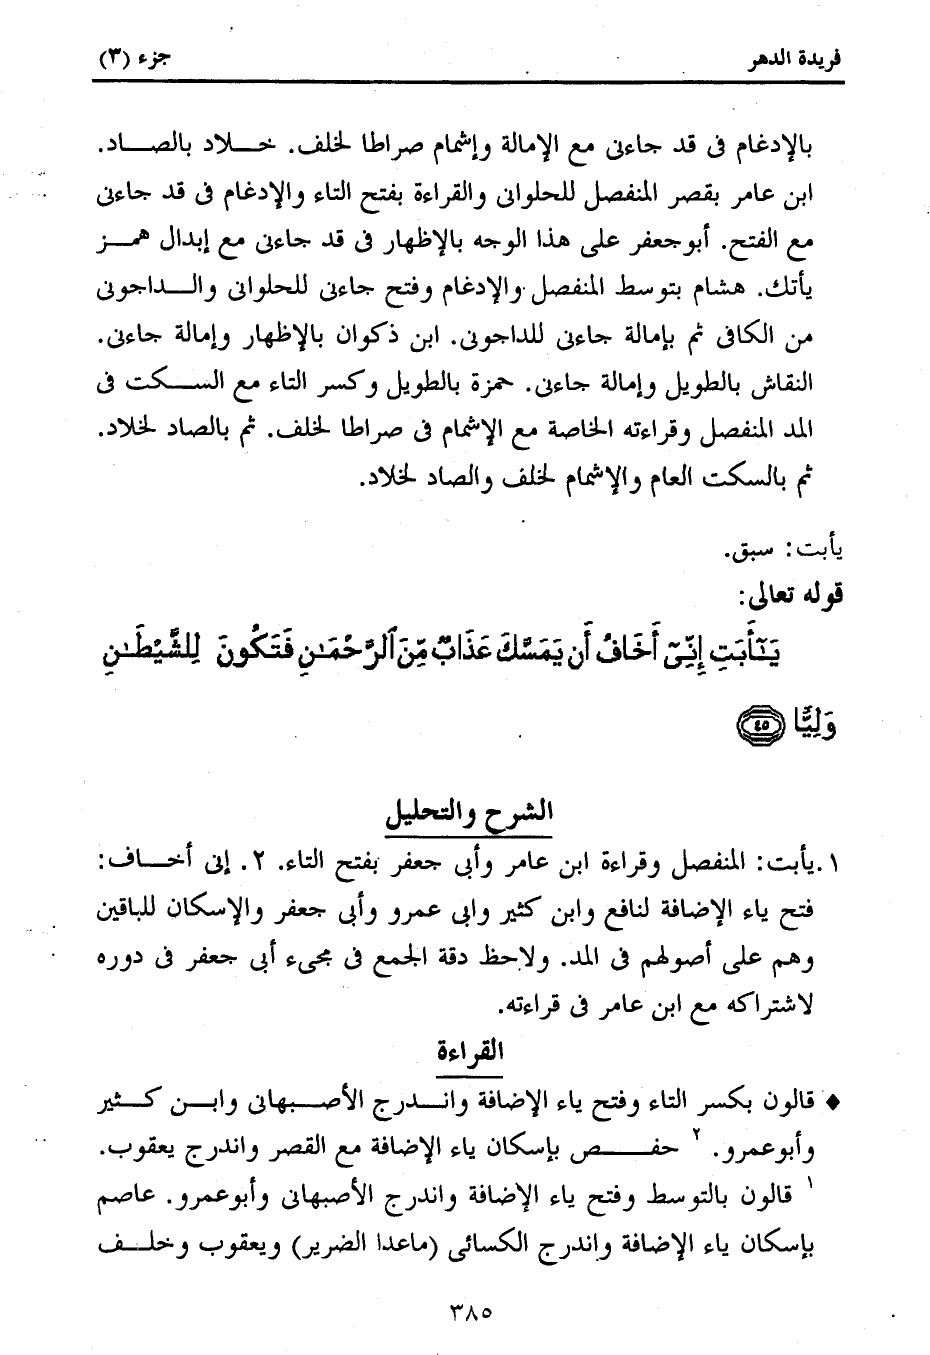 فريدة الدهر جزء (٣)
بالإدغام فى قد جاءنى مع الإمالة وإشمام صراطا لخلف. خـــلاد بالصـــاد.
ابن عامر بقصر المنفصل للحلوانى والقراءة بفتح التاء والإدغام فى قد جاءنى
مع الفتح. أبوجعفر على هذا الوجه بالإظهار فى قد جاءنى مع إبدال همـــز
يأتك. هشام بتوسط المنفصل والإدغام وفتح جاءنى للحلوانى والـــداجونى
من الكافى ثم بإمالة جاءنى للداجونى. ابن ذكوان بالإظهار وإمالة جاءنى.
النقاش بالطويل وإمالة جاءنى. حمزة بالطويل وكسر التاء مع الســـكت فى
المد المنفصل وقراءته الخاصة مع الإشمام فى صراطا لخلف. ثم بالصاد لخلاد.
ثم بالسكت العام والإشمام لخلف والصاد لخلاد.
يأبت: سبق.
قوله تعالى:
يَـٰٓأَبَتِ إِنِّىٓ أَخَافُ أَن يَمَسَّكَ عَذَابٌ مِّنَ ٱلرَّحْمَـٰنِ فَتَكُونَ لِلشَّيْطَـٰنِ
وَلِيًّا ٤٥
الشرح والتحليل
١.يأبت: المنفصل وقراءة ابن عامر وأبى جعفر بفتح التاء. ٢. إنى أخـــاف:
فتح ياء الإضافة لنافع وابن كثير وابى عمرو وأبى جعفر والإسكان للباقين
وهم على أصولهم فى المد. ولاحظ دقة الجمع فى مجىء أبى جعفر فى دوره
لاشتراكه مع ابن عامر فى قراءته.
القراءة
♦ قالون بكسر التاء وفتح ياء الإضافة وانـــدرج الأصـــبهانى وابـــن كـــثير
وأبوعمرو. ٢ حفـــــص بإسكان ياء الإضافة مع القصر واندرج يعقوب.
١ قالون بالتوسط وفتح ياء الإضافة واندرج الأصبهانى وأبوعمرو. عاصم
بإسكان ياء الإضافة واندرج الكسائى (ماعدا الضرير) ويعقوب وخلـــف
٣٨٥